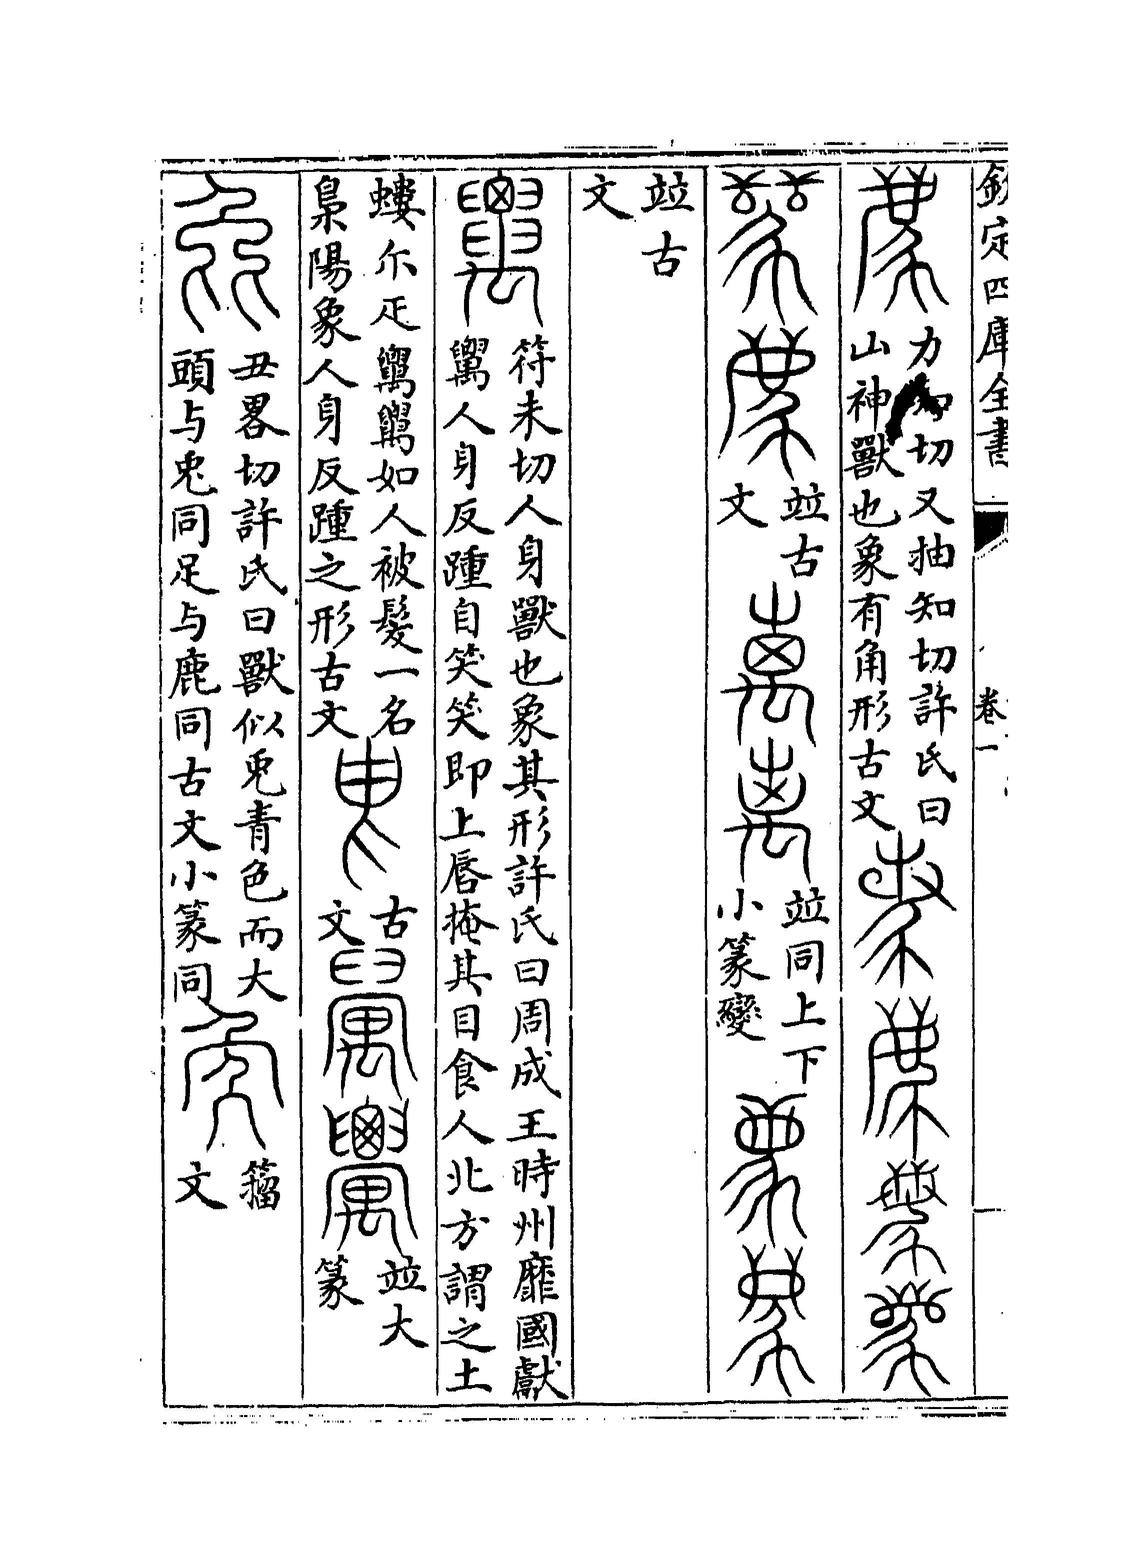 欽定四庫全書
卷一
力知切又抽知切許氏曰
山神獸也象有角形古文
竝古
文
竝同上下
小篆變
竝古
文
符未切人身獸也象其形許氏曰周成王時州靡國獻
人身反踵自笑笑即上唇掩其目食人北方謂之土
螻尓疋如人被髮一名
梟陽象人身反踵之形古文
古
文
竝大
篆
丑畧切許氏曰獸似兎青色而大
頭与兎同足与鹿同古文小篆同
籀
文